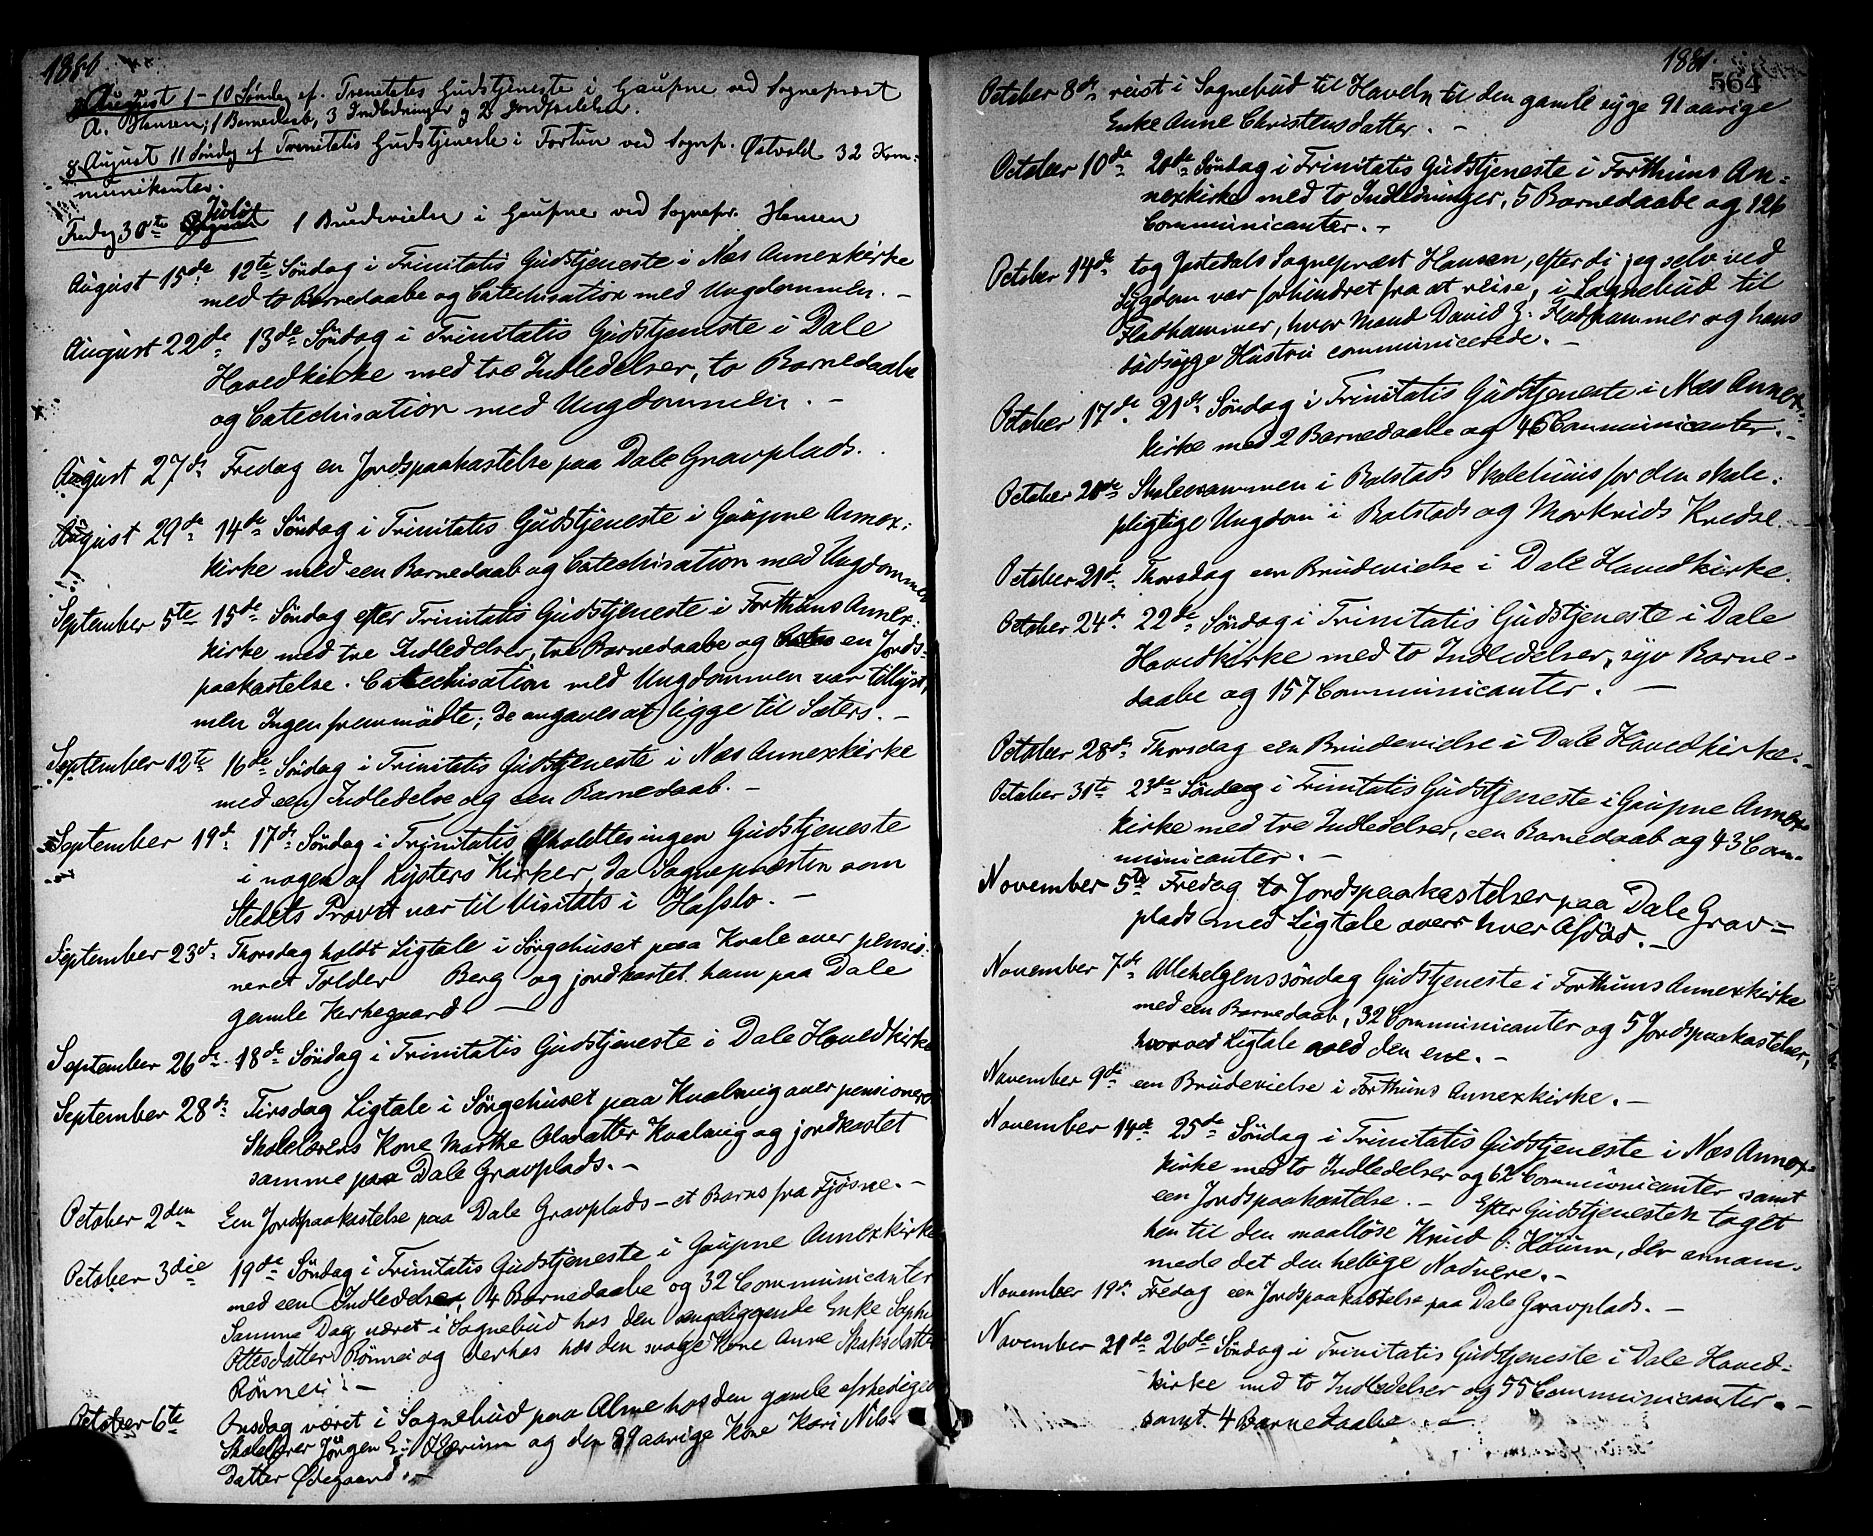 1880
1 August 1 - 10 Søndag ef. Trinitatis Gudstjeneste i Gaupne ved Sognepræst
A. Hansen; 1 Barnedaab, 3 Indledninger og 2 Jordfæstelser.
8 August 11 Søndag ef Trinitatis Gudstjeneste i Fortun ved Sognep. Østvold 32 Kom-
munikanter.
Fredag 30te Juli 1 Brudevielse i Gaupne ved Sognepr. Hansen
August 15de 12te Søndag i Trinitatis Gudstjeneste i Næs Annexkirke
med to Barnedaabe og Catechisation med Ungdommen. -
August 22de 13de Søndag i Trinitatis Gudstjeneste i Dale
Hovedkirke med tre Indledelser, to Barnedaabe
og Catechisation med Ungdommen. -
August 27de Fredag en Jordspaakastelse paa Dale Gravplads.
August 29de 14de Søndag i Trinitatis Gudstjeneste i Gaupne Annex-
kirke med een Barnedaab og Catechisation med Ungdommen
September 5te 15de Søndag efter Trinitatis Gudstjeneste i Forthuns Annex-
kirke med tre Indledelser, tre Barnedaabe og en Jords-
paakastelse. Catechisation med Ungdommen var tillyst,
men Ingen fremmødte; de angaves at ligge til Sæters. -
September 12te 16de Søndag i Trinitatis Gudstjeneste i Næs Annexkirke
med een Indledelse og een Barnedaab. -
September 19de 17de Søndag i Trinitatis afholdtes ingen Gudstjeneste
i nogen af Lysters Kirker, da Sognepræsten som
Stedets Provst var til Visitats i Hafslo. -
September 23de Thorsdag holdt Ligtale i Sørgehuset paa Kvale over pensio-
neret Tolder Berg og jordkastet ham paa Dale
gamle Kirkegaard. -
September 26de 18de Søndag i Trinitatis Gudstjeneste i Dale Hovedkirke
September 28de Tirsdag Ligtale i Sørgehuset paa Kvalevig over pensioneret
Skolelærers Kone Marthe Olsdatter Kvalevig og jordkastet
samme paa Dale Gravplads. -
October 2den Een Jordspaakastelse paa Dale Gravplads - et Barns fra Fjøsne. -
October 3die 19de Søndag i Trinitatis Gudstjeneste i Gaupne Annexkirke
med een Indledelse, 4 Barnedaabe og 32 Communicanter
Samme Dag været i Sognebud hos den sengeliggende Enke Sophie
Ottesdatter Rønnei og derhos hos den svage Kone Anne Skaksdatter
Rønnei. -
October 6te Onsdag været i Sognebud paa Alme hos den gamle afskediged
Skolelærer Jørgen E. Hærum og den 89 aarige Kone Kari Nils-
Datter Ødegaard. -
1881.
564
October 8de reist i Sognebud til Haveln til den gamle syge 91 aarige
Enke Anne Christensdatter. -
October 10de 20de Søndag i Trinitatis Gudstjeneste i Forthuns An-
nexkirke med to Indledninger, 5 Barnedaabe og 126
Communicanter. -
October 14de tog Jostedals Sognepræst Hansen, efterdi jeg selv ved
Sygdom var forhindret fra at reise, i Sognebud til
Fladhammer, hvor Mand David G. Fladhammer og hans
dødsyge Hustru communicerede. -
October 17de 21de Søndag i Trinitatis Gudstjeneste i Næs Annex-
kirke med 2 Barnedaabe og 46 Communicanter. -
October 20de Skoleexamen i Bolstads Skolehuus for den skole-
pligtige Ungdom i Bolstads og Morkrids Kredse. -
October 21de Thorsdag een Brudevielse i Dale Hovedkirke.
October 24de 22de Søndag i Trinitatis Gudstjeneste i Dale
Hovedkirke med to Indledelser, syv Barne-
daabe og 157 Communicanter. -
October 28de Thorsdag een Brudevielse i Dale Hovedkirke. -
October 31te 23de Søndag i Trinitatis Gudstjeneste i Gaupne Annex-
kirke med tre Indledelser, een Barnedaab og 43 Com-
municanter. -
November 5te Fredag to Jordspaakastelser paa Dale Grav-
plads med Ligtale over hver Afdød. -
November 7de Allehelgenssøndag Gudstjeneste i Forthuns Annexkirke
med een Barnedaab, 32 Communicanter og 5 Jordspaakastelser,
hvorved Ligtale ved den ene. -
November 9de een Brudevielse i Forthuns Annexkirke. -
November 14de 25de Søndag i Trinitatis Gudstjeneste i Næs Annex-
kirke med to Indledelser og 62 Communicanter samt
een Jordspaakastelse. - Efter Gudstjenesten taget
hen til den maalløse Knud P. Høium, der annam-
mede det den hellige Nadvere. -
November 19de Fredag een Jordspaakastelse paa Dale Gravplads. -
November 21de 26de Søndag i Trinitatis Gudstjeneste i Dale Hoved-
kirke med to Indledelser og 55 Communicanter. -
samt 4 Barnedaabe. -